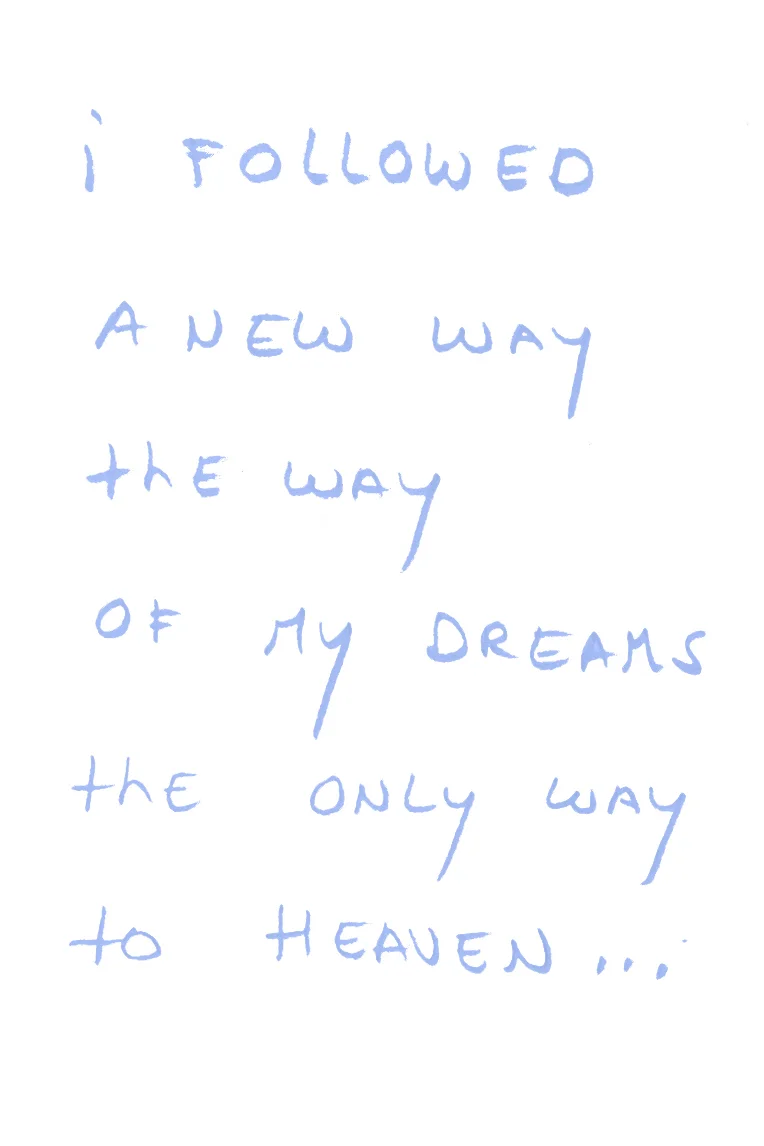 i FOLLOWED
A NEW WAY
thE WAY
OF MY DREAMS
thE ONLY WAY
to HEAVEN...